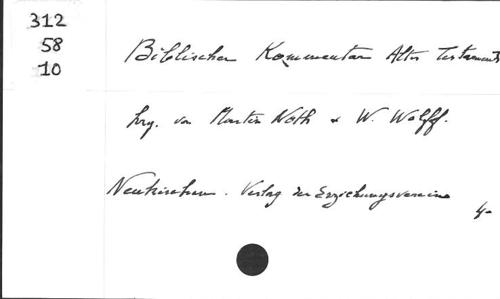 312
58
10
Biblischer Kommentar Altes Testament
hrg. von Martin Noth & W. Wolff.
Neukirchen. Verlag der Erziehungsvereins
4°